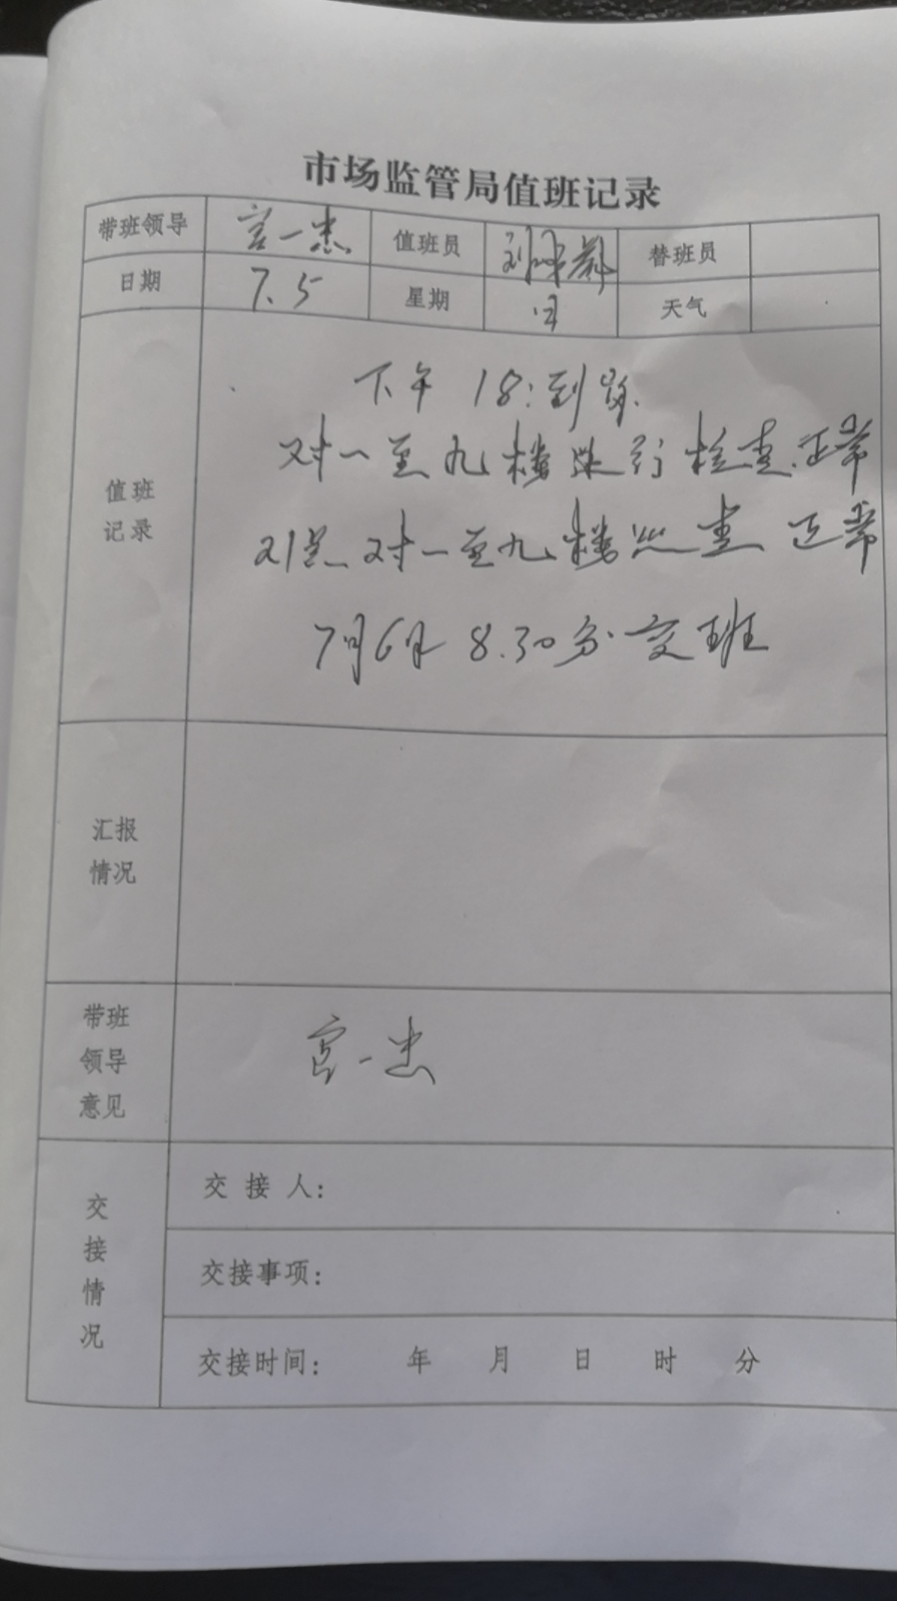 市场监管局值班记录
带班领导 宫一忠 值班员 刘 替班员
日期 7.5 星期 日 天气
值班记录
下午 18:到岗.
对一至九楼进行检查.正常
21点对一至九楼巡查 正常
7月6日 8.30分交班
汇报情况
带班领导意见
宫一忠
交接情况
交接人:
交接事项:
交接时间: 年 月 日 时 分